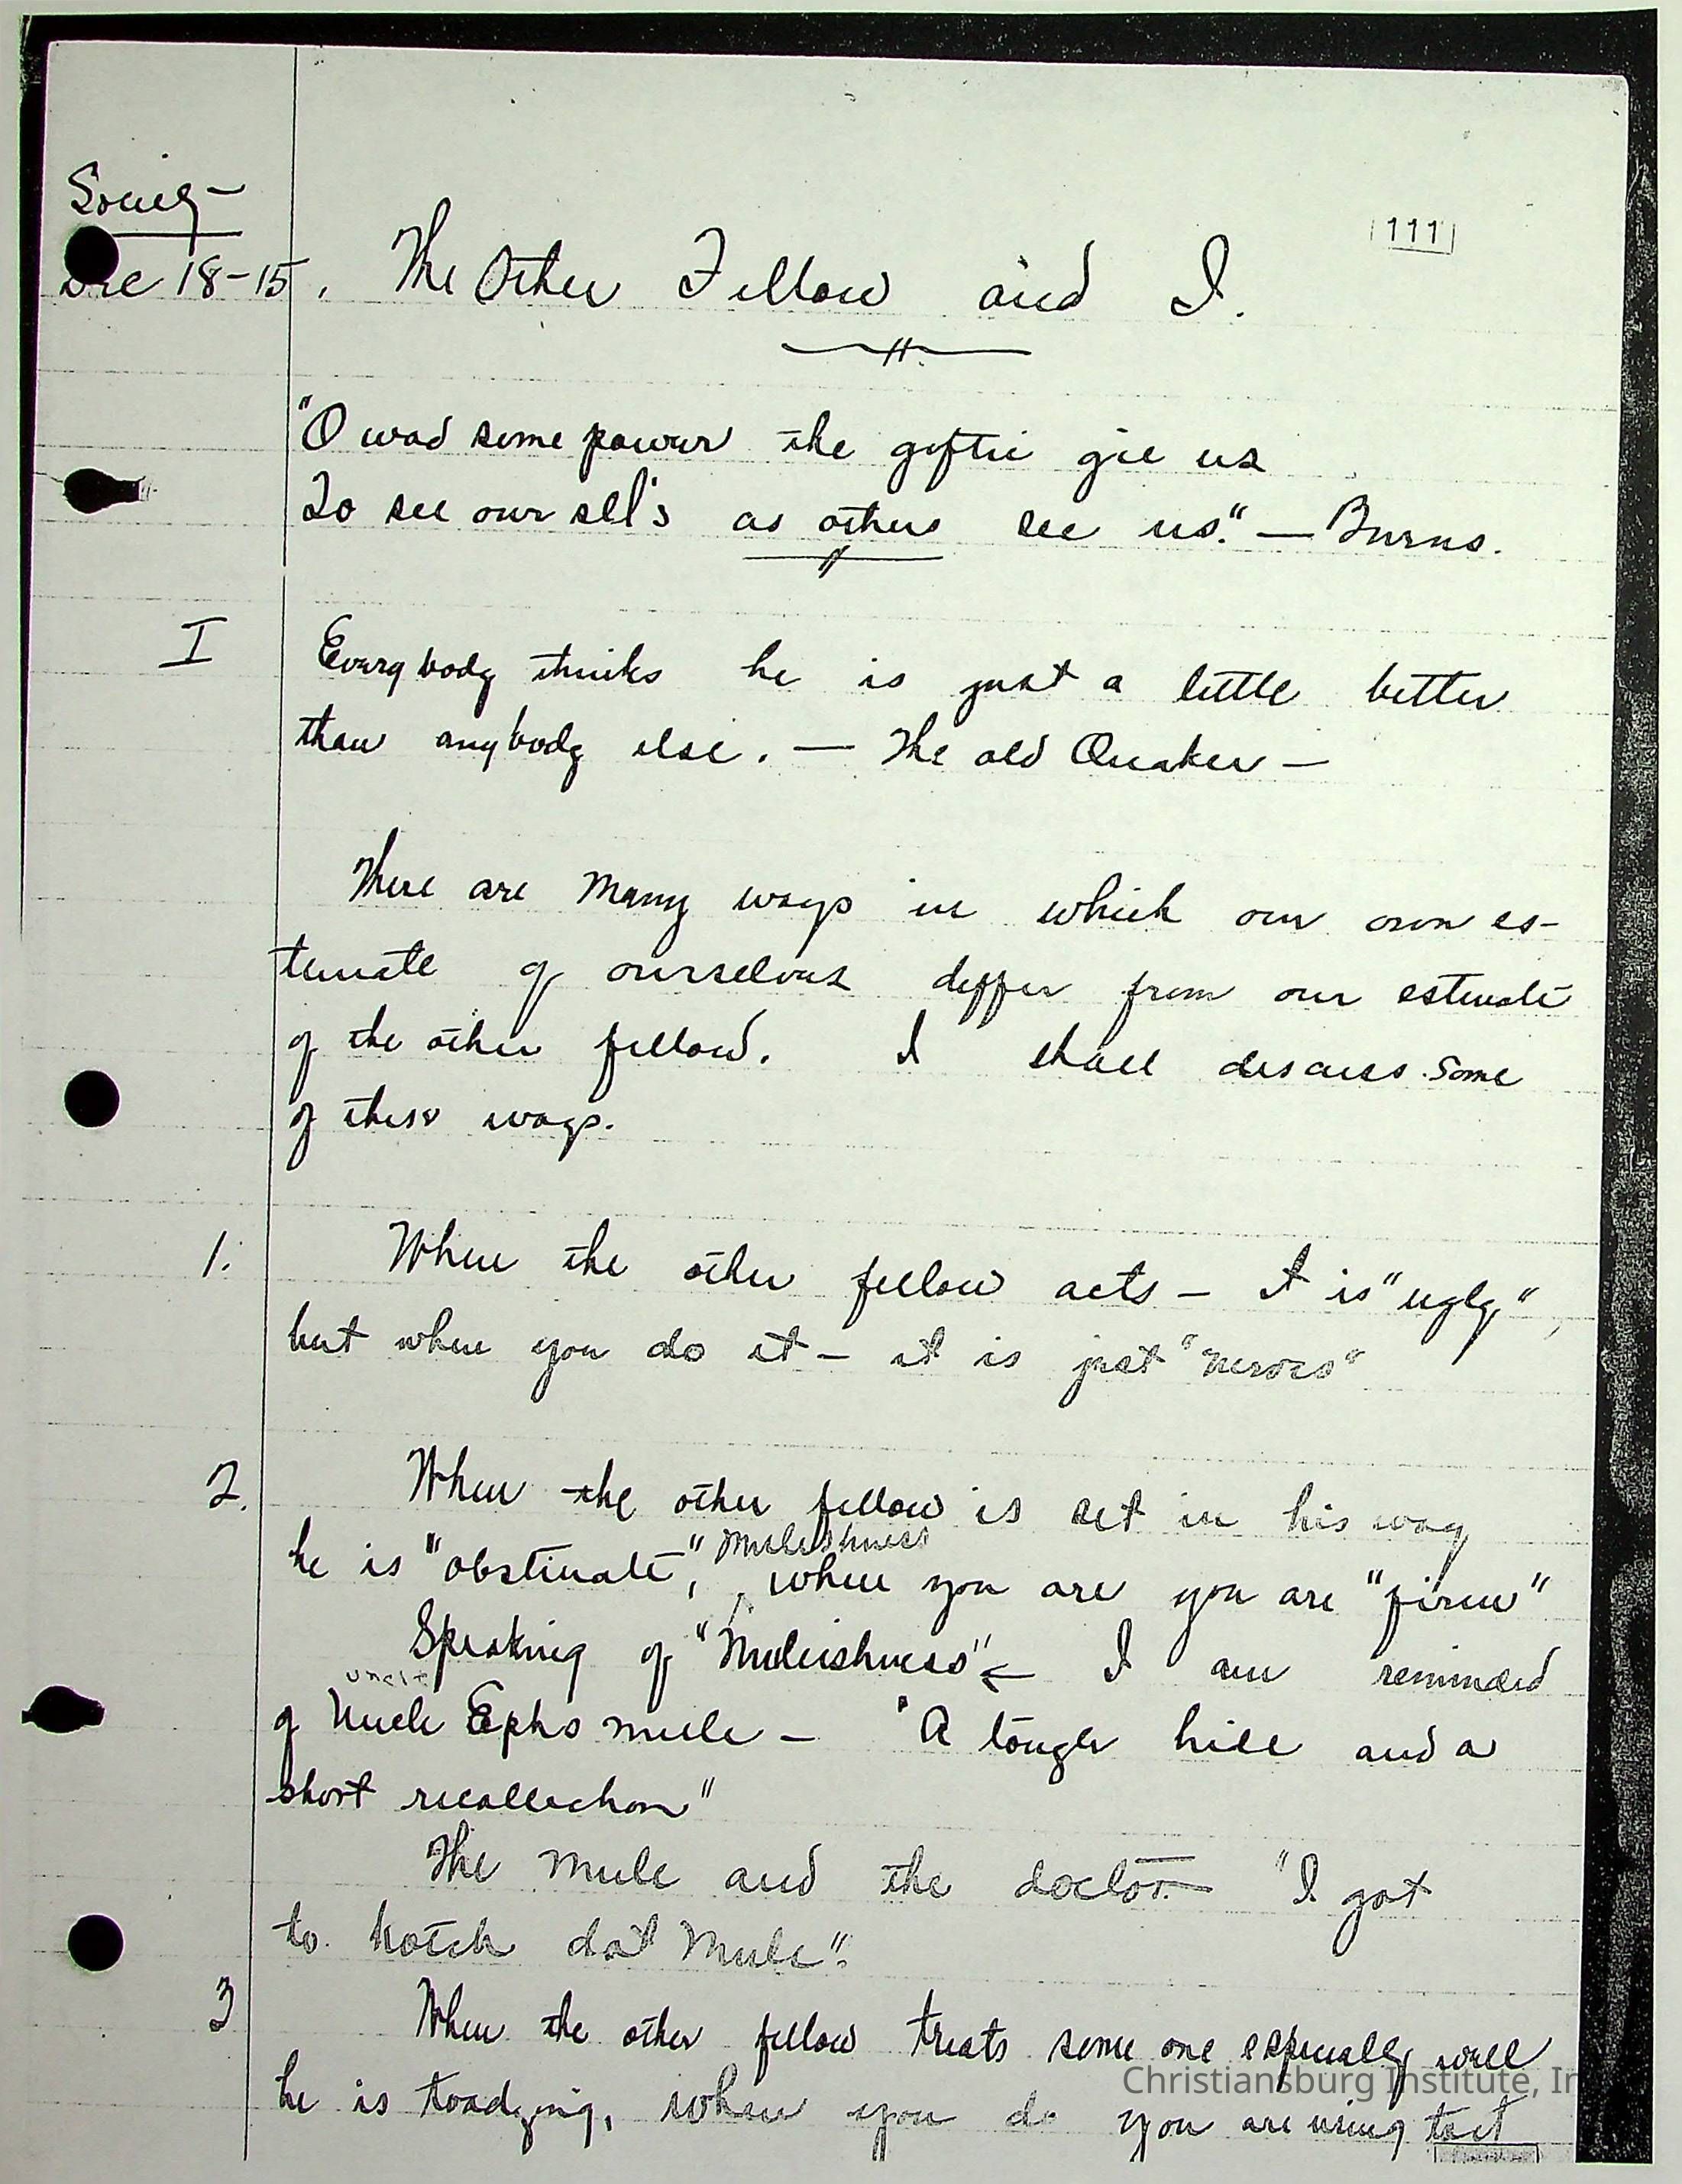 Society—
Dec 18-15, The Other Fellow and I.
111
"O wad some power the giftie gie us
To see oursel's as others see us." — Burns.
I Everybody thinks he is just a little better
than anybody else. — The old Quaker —
There are many ways in which our own es-
timate of ourselves differ from our estimate
of the other fellow. I shall discuss some
of these ways.
1. When the other fellow acts — it is "ugly",
but when you do it — it is just "nerves"
2. When the other fellow is set in his way
Muleishness
he is "obstinate," when you are you are "firm"
Speaking of "Muleishness" I am reminded
uncle
of Uncle Ephs mule — "A tough hide and a
short recollection"
The mule and the doctor — "I got
to hotch dat Mule".
3 When the other fellow treats some one especially well
he is toadying, when you do you are using tact
Christiansburg Institute, In